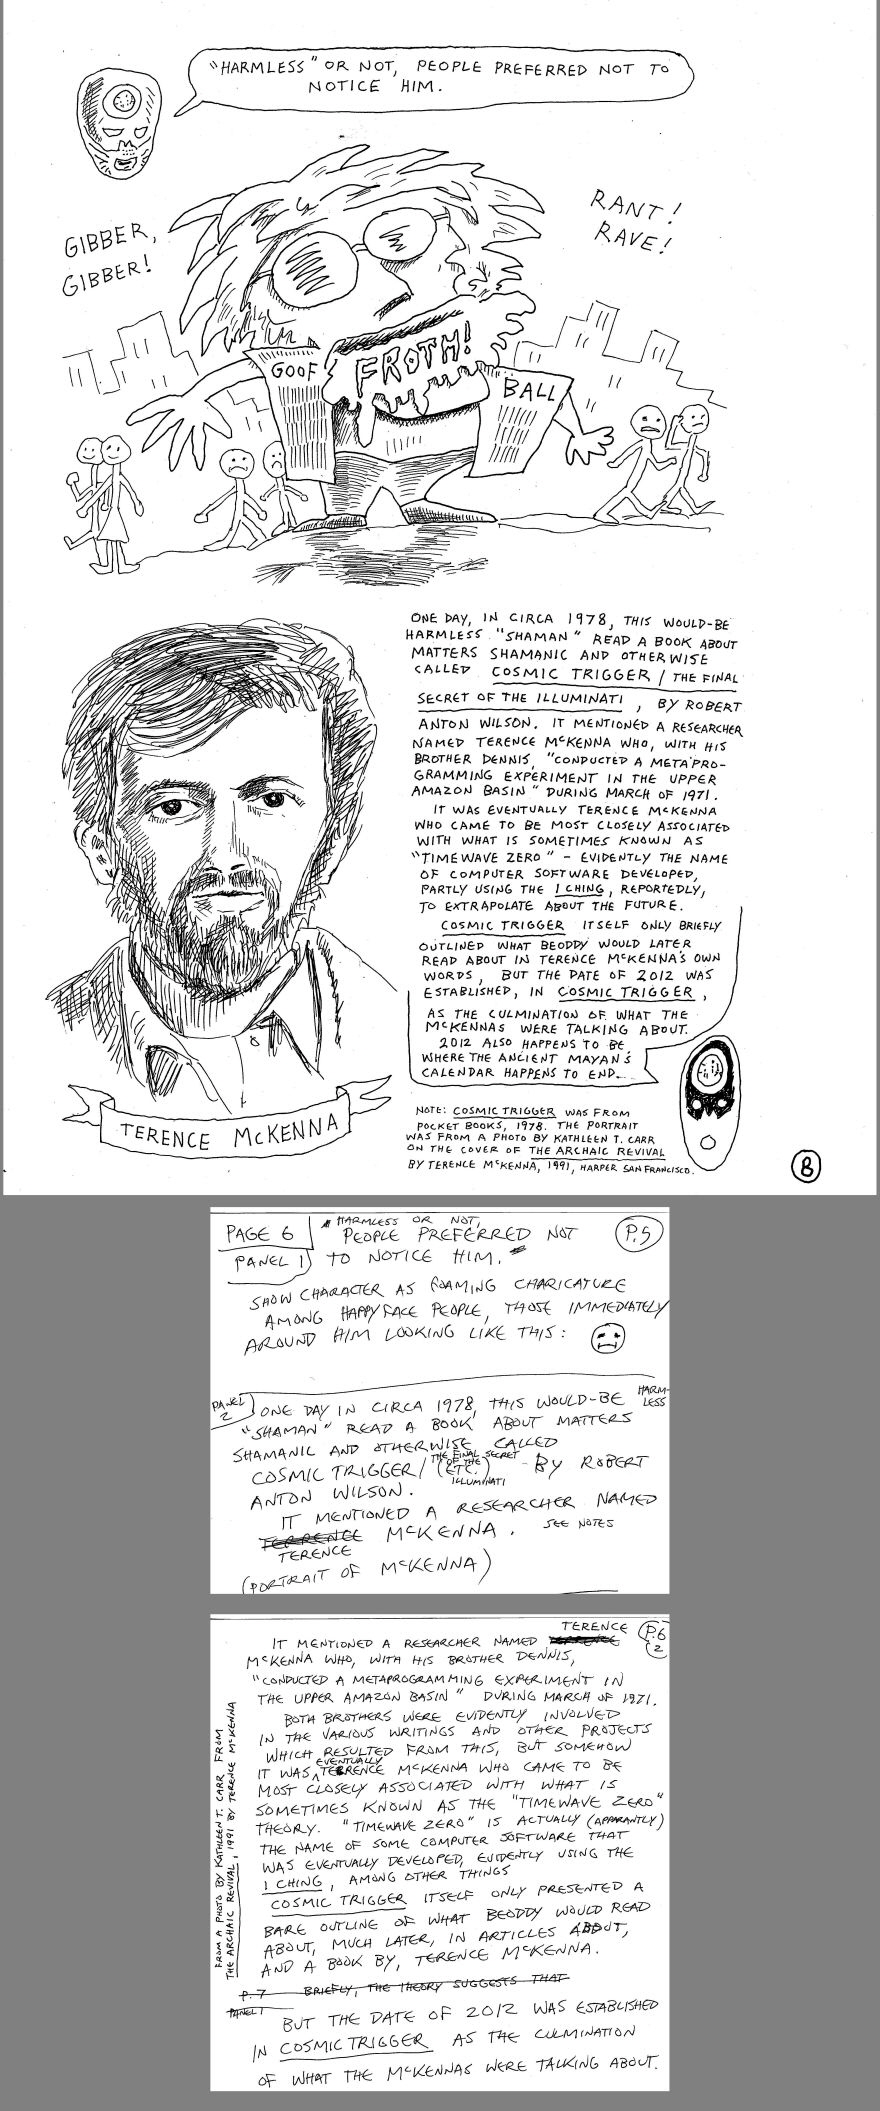 "HARMLESS" OR NOT, PEOPLE PREFERRED NOT TO
NOTICE HIM.
GIBBER,
GIBBER!
RANT!
RAVE!
GOOF
FROTH!
BALL
ONE DAY, IN CIRCA 1978, THIS WOULD-BE
HARMLESS "SHAMAN" READ A BOOK ABOUT
MATTERS SHAMANIC AND OTHERWISE
CALLED COSMIC TRIGGER / THE FINAL
SECRET OF THE ILLUMINATI, BY ROBERT
ANTON WILSON. IT MENTIONED A RESEARCHER
NAMED TERENCE McKENNA WHO, WITH HIS
BROTHER DENNIS, "CONDUCTED A METAPRO-
GRAMMING EXPERIMENT IN THE UPPER
AMAZON BASIN" DURING MARCH OF 1971.
IT WAS EVENTUALLY TERENCE McKENNA
WHO CAME TO BE MOST CLOSELY ASSOCIATED
WITH WHAT IS SOMETIMES KNOWN AS
"TIMEWAVE ZERO" - EVIDENTLY THE NAME
OF COMPUTER SOFTWARE DEVELOPED,
PARTLY USING THE I CHING, REPORTEDLY,
TO EXTRAPOLATE ABOUT THE FUTURE.
COSMIC TRIGGER ITSELF ONLY BRIEFLY
OUTLINED WHAT BEODDY WOULD LATER
READ ABOUT IN TERENCE McKENNA'S OWN
WORDS, BUT THE DATE OF 2012 WAS
ESTABLISHED, IN COSMIC TRIGGER,
AS THE CULMINATION OF WHAT THE
McKENNAS WERE TALKING ABOUT.
2012 ALSO HAPPENS TO BE
WHERE THE ANCIENT MAYAN'S
CALENDAR HAPPENS TO END...
TERENCE McKENNA
NOTE: COSMIC TRIGGER WAS FROM
POCKET BOOKS, 1978. THE PORTRAIT
WAS FROM A PHOTO BY KATHLEEN T. CARR
ON THE COVER OF THE ARCHAIC REVIVAL
BY TERENCE McKENNA, 1991, HARPER SAN FRANCISCO.
8
PAGE 6
"HARMLESS OR NOT,
PEOPLE PREFERRED NOT
P.5
PANEL 1
TO NOTICE HIM."
SHOW CHARACTER AS FOAMING CHARICATURE
AMONG HAPPYFACE PEOPLE, THOSE IMMEDIATELY
AROUND HIM LOOKING LIKE THIS:
PANEL 2
ONE DAY IN CIRCA 1978, THIS WOULD-BE HARM-
LESS
"SHAMAN" READ A BOOK ABOUT MATTERS
SHAMANIC AND OTHERWISE CALLED
COSMIC TRIGGER / (ETC.) THE FINAL SECRET OF THE ILLUMINATI - BY ROBERT
ANTON WILSON.
IT MENTIONED A RESEARCHER NAMED
TERRENCE McKENNA. SEE NOTES
TERENCE
(PORTRAIT OF McKENNA)
TERENCE
P.6
2
IT MENTIONED A RESEARCHER NAMED TERRENCE
McKENNA WHO, WITH HIS BROTHER DENNIS,
"CONDUCTED A METAPROGRAMMING EXPERIMENT IN
THE UPPER AMAZON BASIN" DURING MARCH OF 1971.
BOTH BROTHERS WERE EVIDENTLY INVOLVED
IN THE VARIOUS WRITINGS AND OTHER PROJECTS
WHICH RESULTED FROM THIS, BUT SOMEHOW
IT WAS EVENTUALLY TERENCE McKENNA WHO CAME TO BE
MOST CLOSELY ASSOCIATED WITH WHAT IS
SOMETIMES KNOWN AS THE "TIMEWAVE ZERO"
THEORY. "TIMEWAVE ZERO" IS ACTUALLY (APPARANTLY)
THE NAME OF SOME COMPUTER SOFTWARE THAT
WAS EVENTUALLY DEVELOPED, EVIDENTLY USING THE
I CHING, AMONG OTHER THINGS
COSMIC TRIGGER ITSELF ONLY PRESENTED A
BARE OUTLINE OF WHAT BEODDY WOULD READ
ABOUT, MUCH LATER, IN ARTICLES ABOUT,
AND A BOOK BY, TERENCE McKENNA.
P.7 BRIEFLY, THE THEORY SUGGESTS THAT
PANEL 1
BUT THE DATE OF 2012 WAS ESTABLISHED
IN COSMIC TRIGGER AS THE CULMINATION
OF WHAT THE McKENNAS WERE TALKING ABOUT.
FROM A PHOTO BY KATHLEEN T. CARR FROM
THE ARCHAIC REVIVAL, 1991 BY TERENCE McKENNA